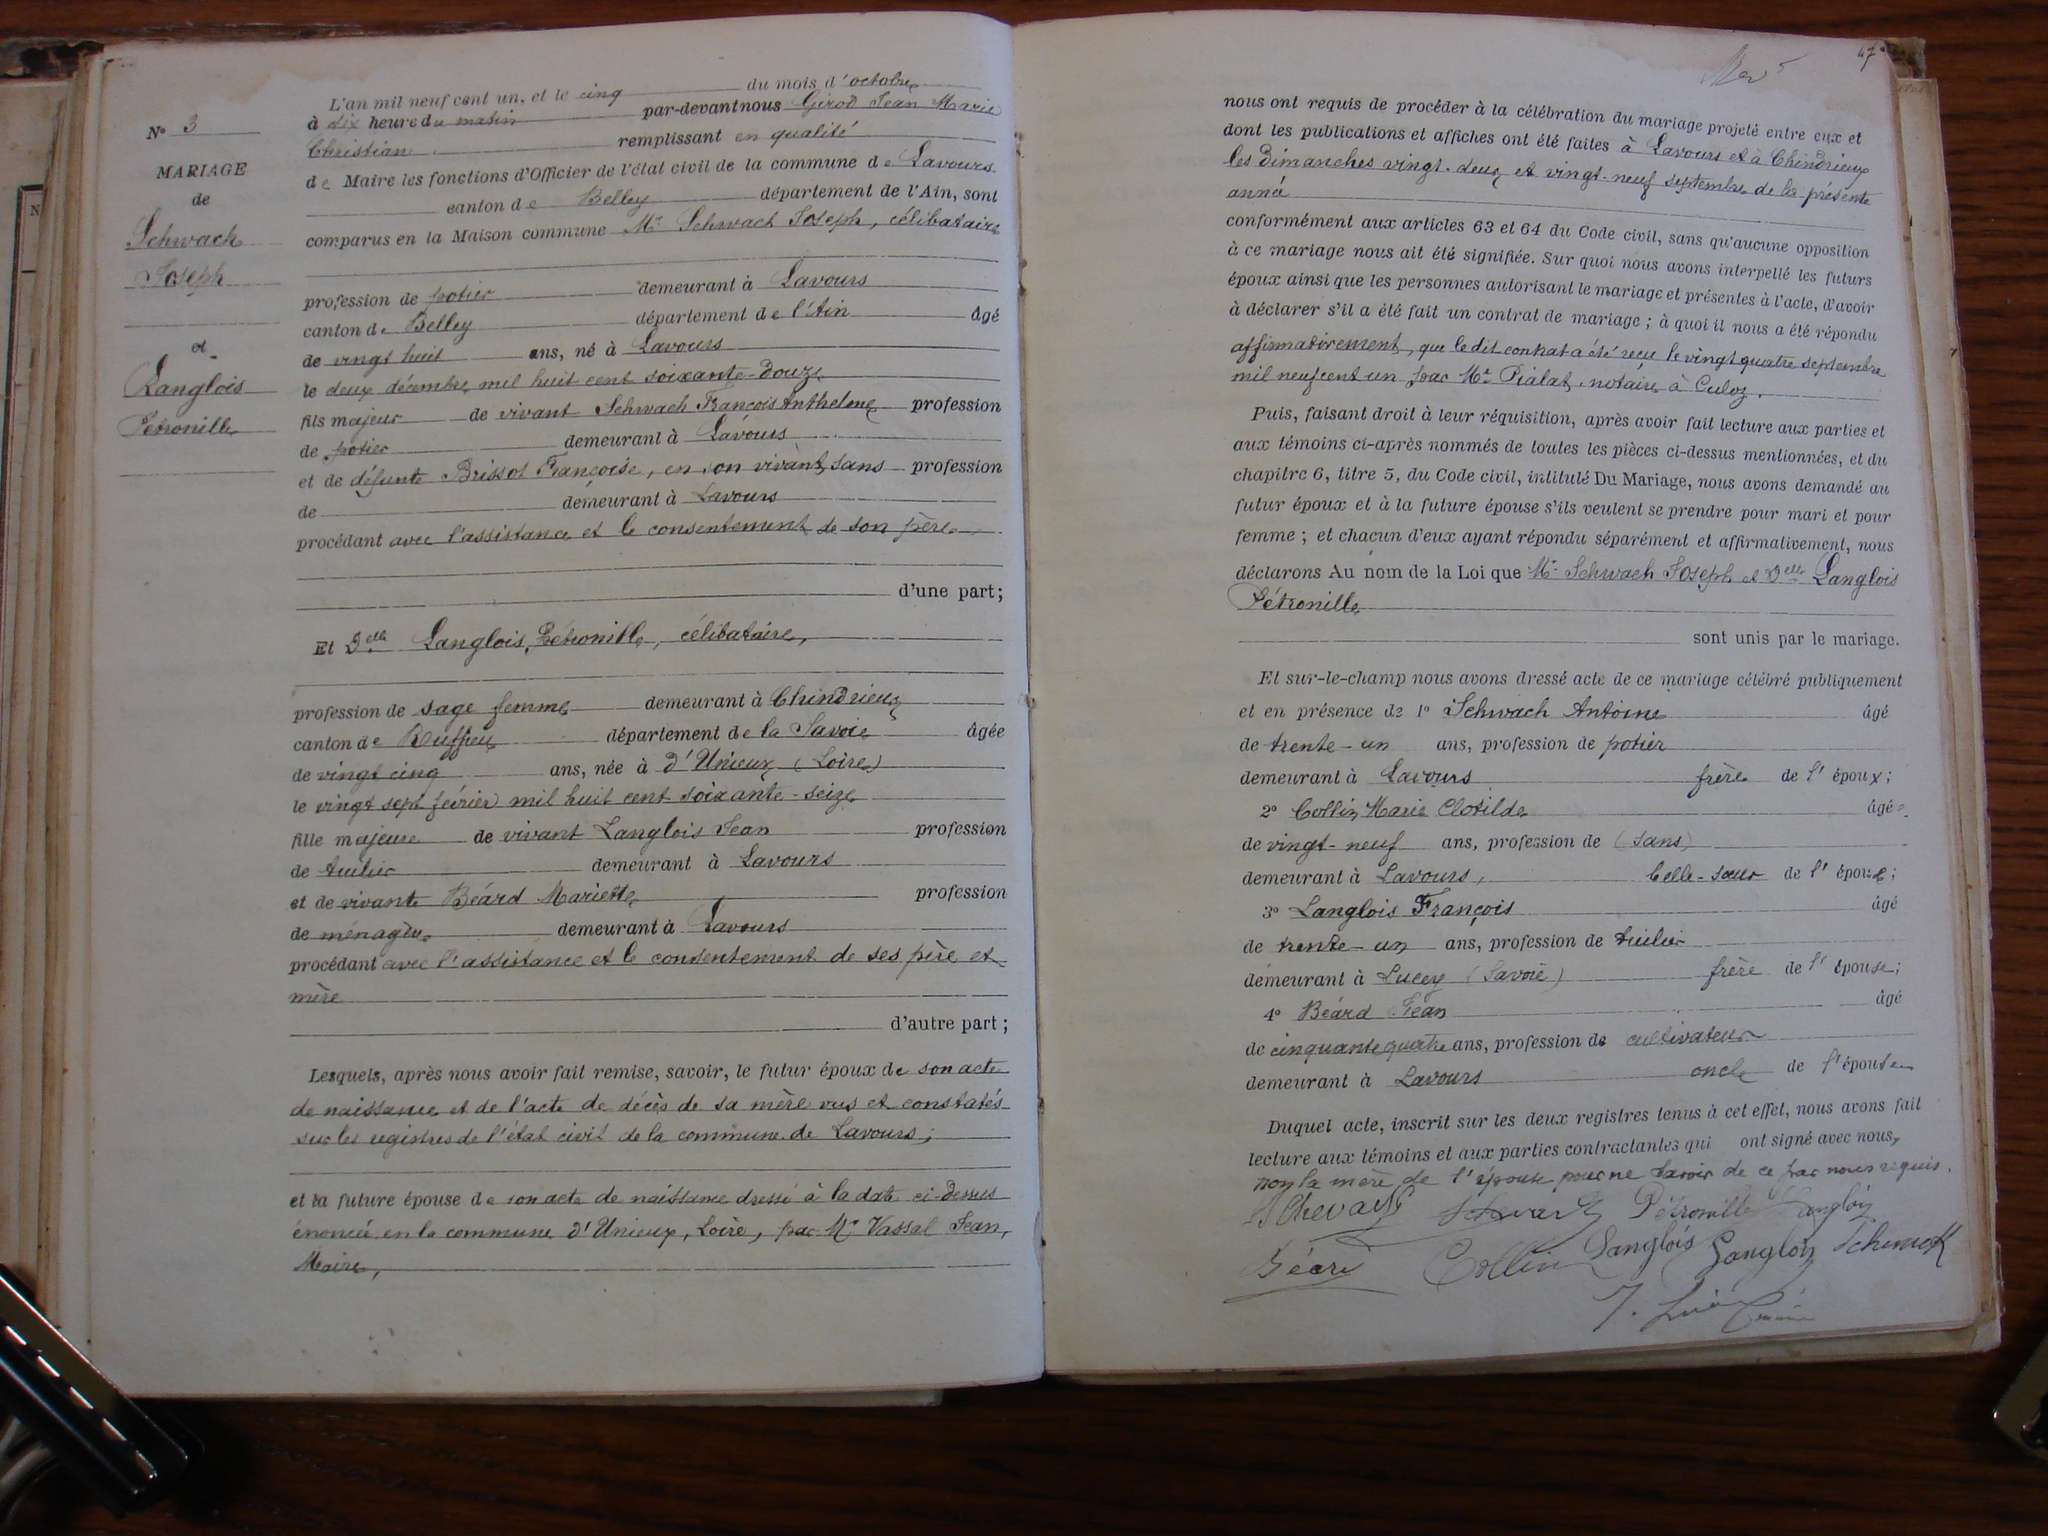 N° 3
MARIAGE
de
Schwach
Joseph
et
Langlois
Pétronille
L'an mil neuf cent un, et le cinq du mois d'octobre
à dix heure du matin par-devant nous Girod Jean Marie
Christian remplissant en qualité
de Maire les fonctions d'Officier de l'état civil de la commune de Lavours
canton de Belley département de l'Ain, sont
comparus en la Maison commune Mr Schwach Joseph, célibataire
profession de potier demeurant à Lavours
canton de Belley département de l'Ain âgé
de vingt huit ans, né à Lavours
le deux décembre mil huit cent soixante-douze
fils majeur de vivant Schwach François Anthelme profession
de potier demeurant à Lavours
et de défunte Brissot Françoise, en son vivant, sans profession
de demeurant à Lavours
procédant avec l'assistance et le consentement de son père
d'une part;
Et Delle Langlois, Pétronille, célibataire,
profession de sage femme demeurant à Chindrieux
canton de Ruffieu département de la Savoie âgée
de vingt cinq ans, née à d'Unieux (Loire)
le vingt sept février mil huit cent soixante-seize
fille majeure de vivant Langlois Jean profession
de tuilier demeurant à Lavours
et de vivante Béard Mariette profession
de ménagère demeurant à Lavours
procédant avec l'assistance et le consentement de ses père et
mère
d'autre part;
Lesquels, après nous avoir fait remise, savoir, le futur époux de son acte
de naissance et de l'acte de décès de sa mère vus et constatés
sur les registres de l'état civil de la commune de Lavours;
et la future épouse de son acte de naissance dressé à la date ci-dessus
énoncée en la commune d'Unieux, Loire, par Mr Vassal Jean,
Maire,
47
nous ont requis de procéder à la célébration du mariage projeté entre eux et
dont les publications et affiches ont été faites à Lavours et à Chindrieux
les dimanches vingt-deux et vingt-neuf septembre de la présente
année
conformément aux articles 63 et 64 du Code civil, sans qu'aucune opposition
à ce mariage nous ait été signifiée. Sur quoi nous avons interpellé les futurs
époux ainsi que les personnes autorisant le mariage et présentes à l'acte, d'avoir
à déclarer s'il a été fait un contrat de mariage; à quoi il nous a été répondu
affirmativement, que le dit contrat a été reçu le vingt quatre septembre
mil neuf cent un par Me Pialat, notaire à Culoz.
Puis, faisant droit à leur réquisition, après avoir fait lecture aux parties et
aux témoins ci-après nommés de toutes les pièces ci-dessus mentionnées, et du
chapitre 6, titre 5, du Code civil, intitulé Du Mariage, nous avons demandé au
futur époux et à la future épouse s'ils veulent se prendre pour mari et pour
femme; et chacun d'eux ayant répondu séparément et affirmativement, nous
déclarons Au nom de la Loi que Mr Schwach Joseph et Delle Langlois
Pétronille
sont unis par le mariage.
Et sur-le-champ nous avons dressé acte de ce mariage célébré publiquement
et en présence de 1° Schwach Antoine âgé
de trente-un ans, profession de potier
demeurant à Lavours frère de l'époux;
2° Collin Marie Clotilde âgée
de vingt-neuf ans, profession de (sans)
demeurant à Lavours, belle-sœur de l'époux;
3° Langlois François âgé
de trente-un ans, profession de tuilier
demeurant à Lucey (Savoie) frère de l'épouse;
4° Béard Jean âgé
de cinquante quatre ans, profession de cultivateur
demeurant à Lavours oncle de l'épouse
Duquel acte, inscrit sur les deux registres tenus à cet effet, nous avons fait
lecture aux témoins et aux parties contractantes qui ont signé avec nous,
non la mère de l'épouse pour ne savoir de ce par nous requis.
Pétronille Langlois
Béard Collin Langlois Langlois